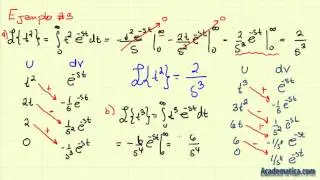 Ejemplo #3
a) ℒ{t²} = ∫₀^∞ t² e^-st dt = -t²e^-st/s |₀^∞ - 2t/s² e^-st |₀^∞ - 2/s³ e^-st |₀^∞ = 2/s³
0 0
u dv
t² e^-st
2t -1/s e^-st
2 1/s² e^-st
0 -1/s³ e^-st
+ - +
ℒ{t²} = 2/s³
b) ℒ{t³} = ∫₀^∞ t³ e^-st dt
= -6/s⁴ e^-st |₀^∞ = 6/s⁴
u dv
t³ e^-st
3t² -1/s e^-st
6t 1/s² e^-st
6 -1/s³ e^-st
0 1/s⁴ e^-st
+ - + -
Academatica.com